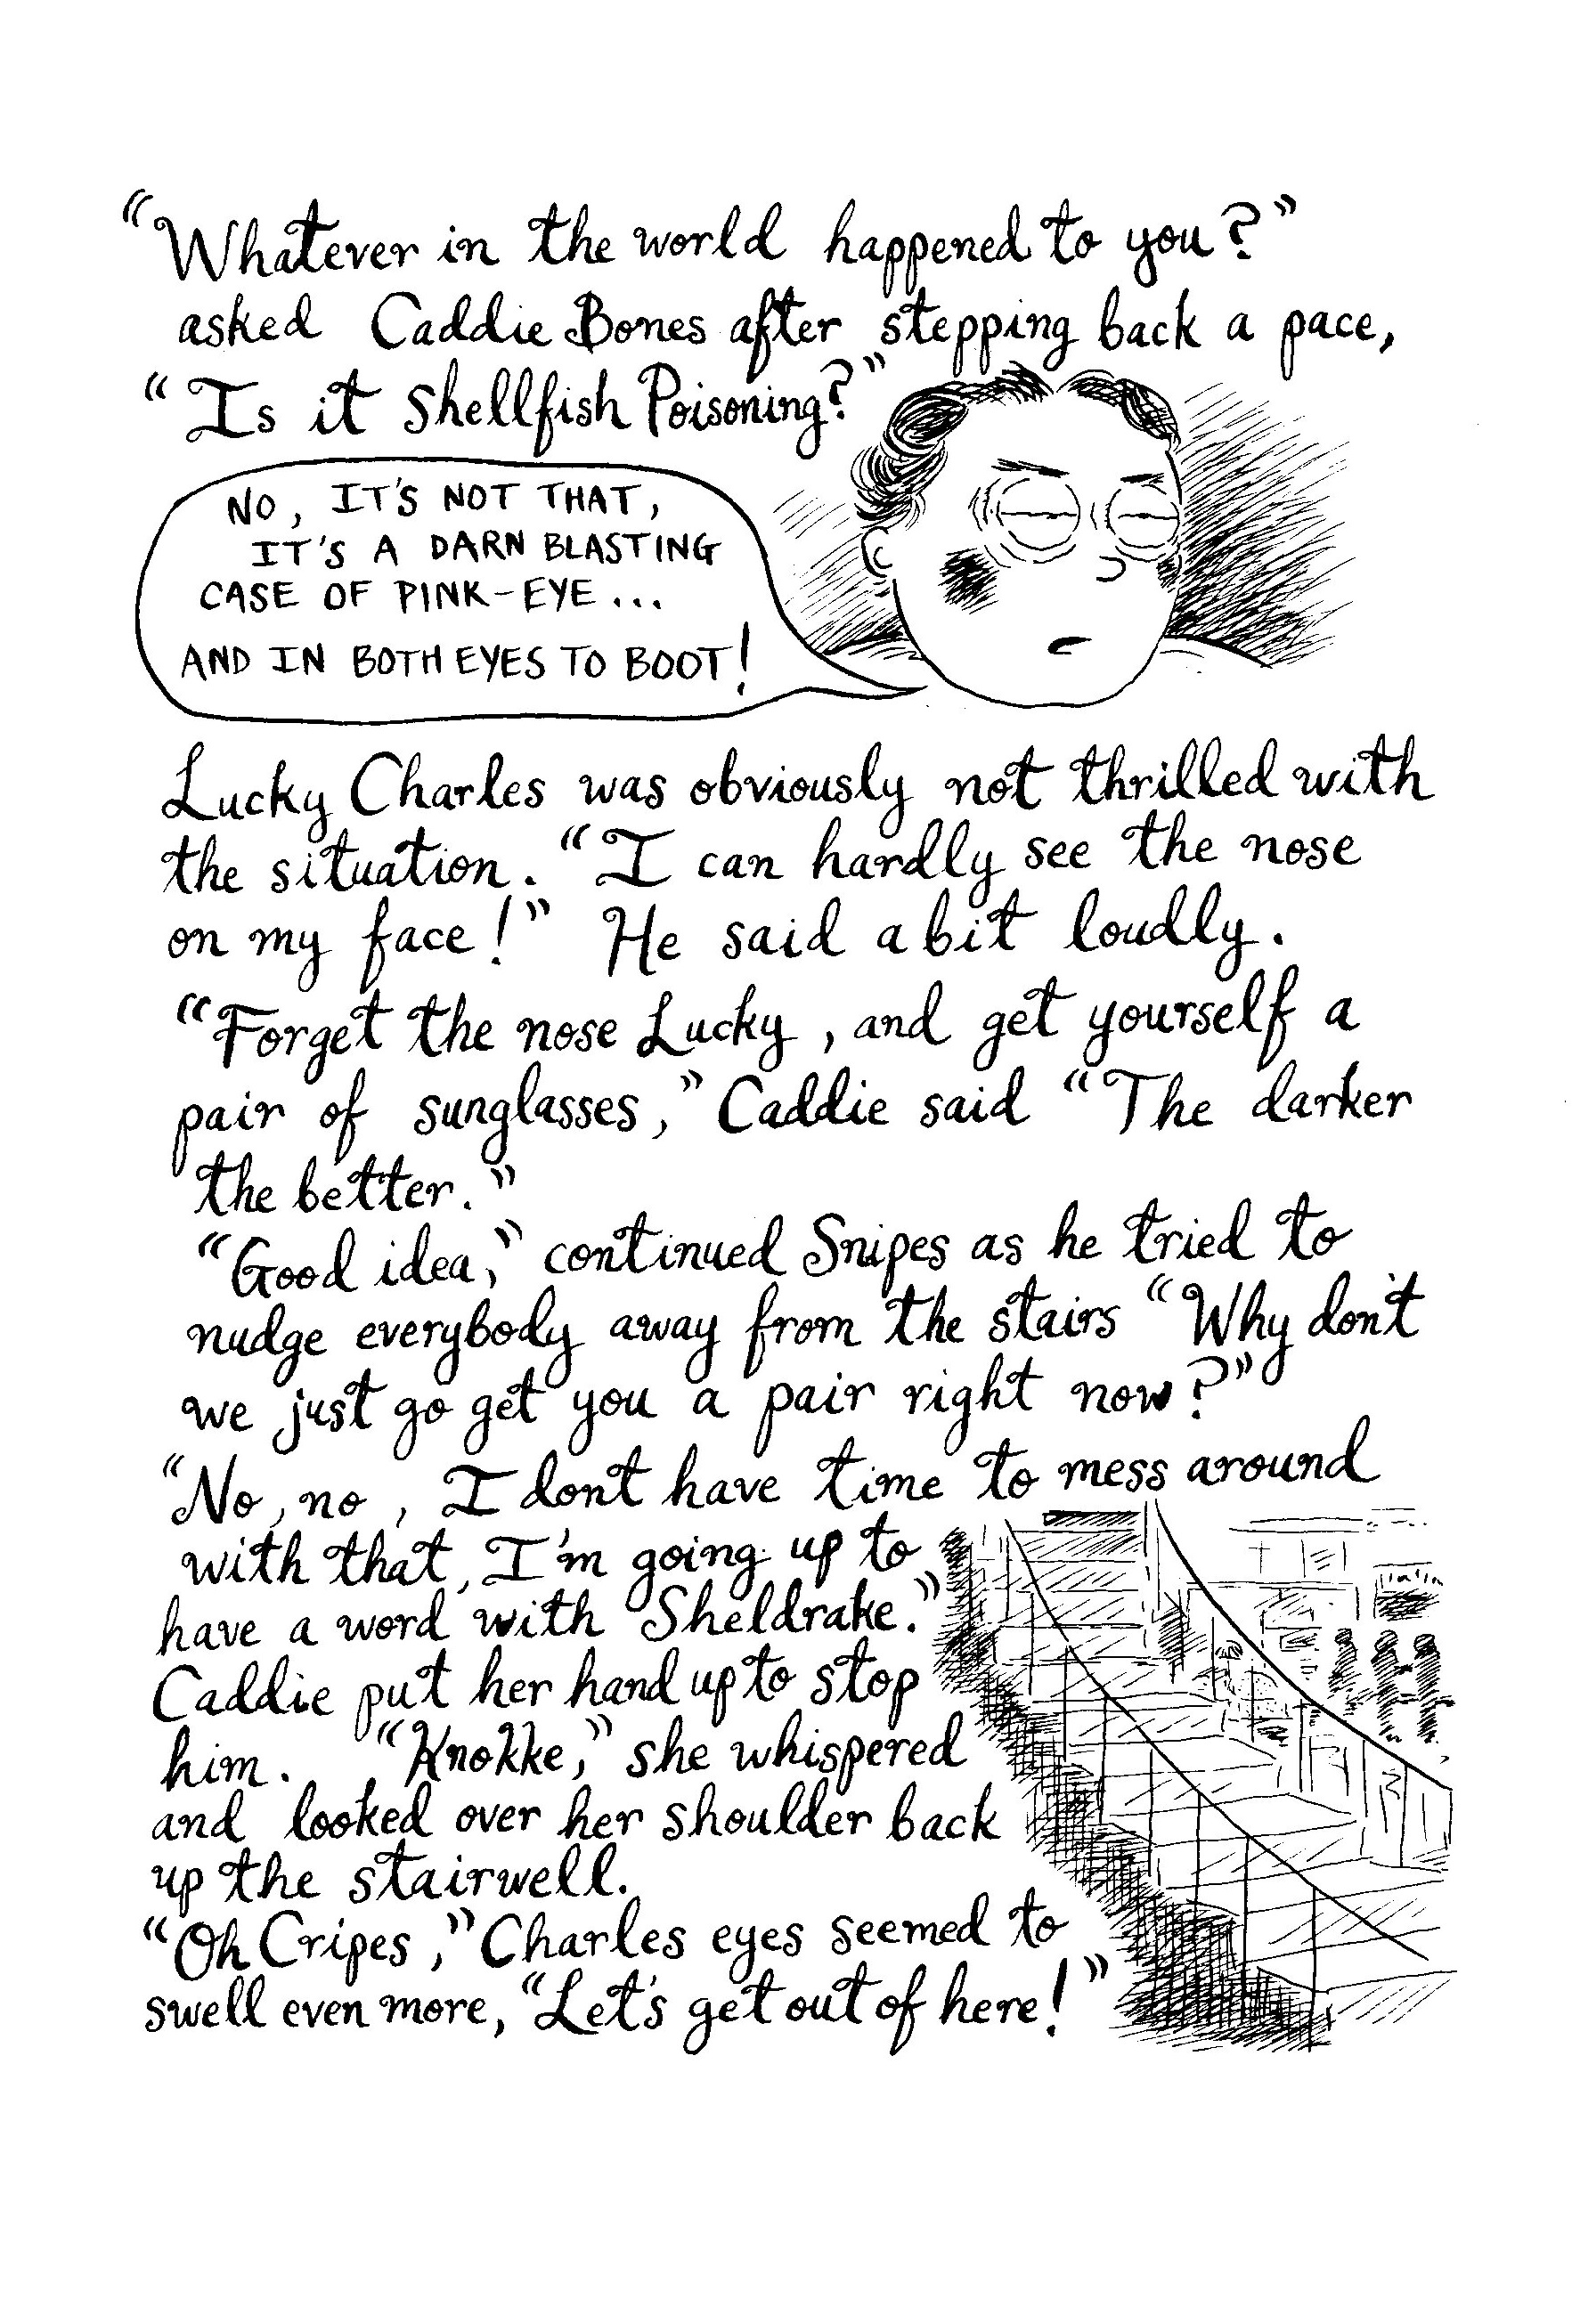 “Whatever in the world happened to you?”
asked Caddie Bones after stepping back a pace,
“Is it Shellfish Poisoning?”
NO, IT'S NOT THAT,
IT'S A DARN BLASTING
CASE OF PINK-EYE...
AND IN BOTH EYES TO BOOT!
Lucky Charles was obviously not thrilled with
the situation. “I can hardly see the nose
on my face!” He said a bit loudly.
“Forget the nose Lucky, and get yourself a
pair of sunglasses,” Caddie said “The darker
the better.”
“Good idea,” continued Snipes as he tried to
nudge everybody away from the stairs “Why don't
we just go get you a pair right now?”
“No, no, I dont have time to mess around
with that, I'm going up to
have a word with Sheldrake.”
Caddie put her hand up to stop
him. “Knokke,” she whispered
and looked over her shoulder back
up the stairwell.
“Oh Cripes,” Charles eyes seemed to
swell even more, “Let's get out of here!”